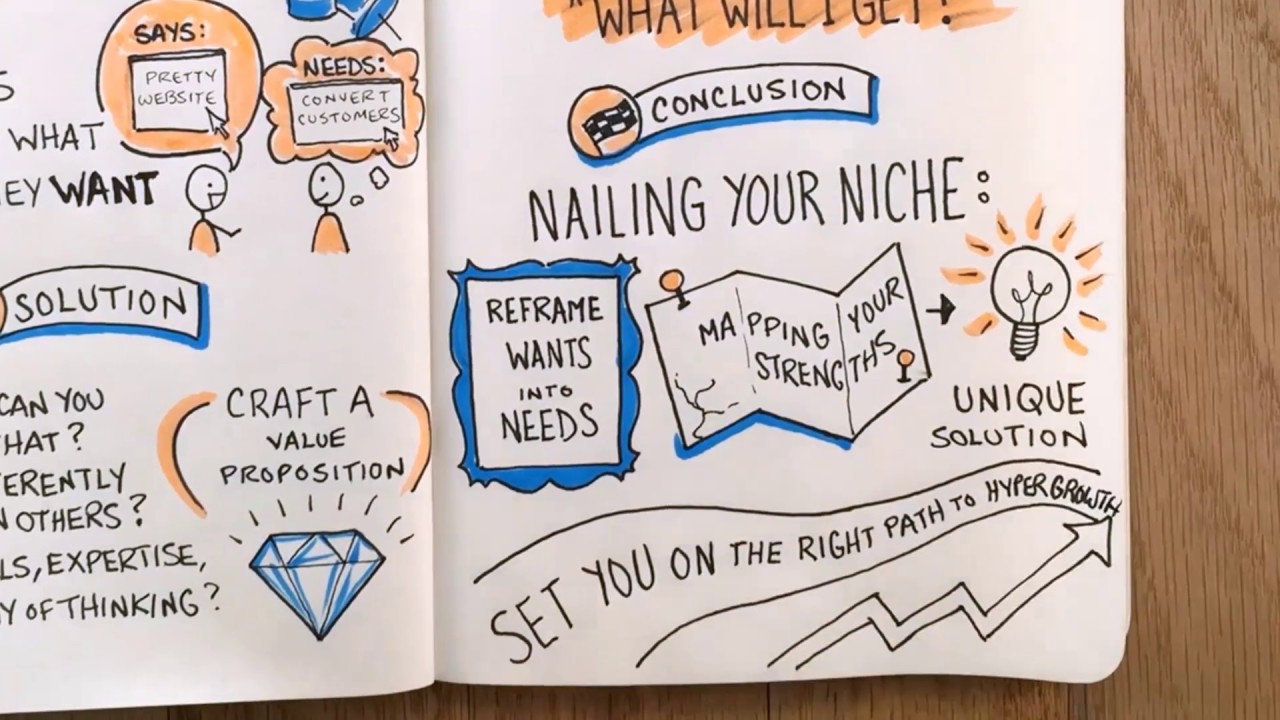 SAYS:
PRETTY
WEBSITE
NEEDS:
CONVERT
CUSTOMERS
WHAT
WANT
SOLUTION
CAN YOU
HAT?
ERENTLY
N OTHERS?
LS, EXPERTISE,
Y OF THINKING?
CRAFT A
VALUE
PROPOSITION
"WHAT WILL I GET?
CONCLUSION
NAILING YOUR NICHE:
REFRAME
WANTS
INTO
NEEDS
MAPPING YOUR
STRENGTHS
UNIQUE
SOLUTION
SET YOU ON THE RIGHT PATH TO HYPERGROWTH